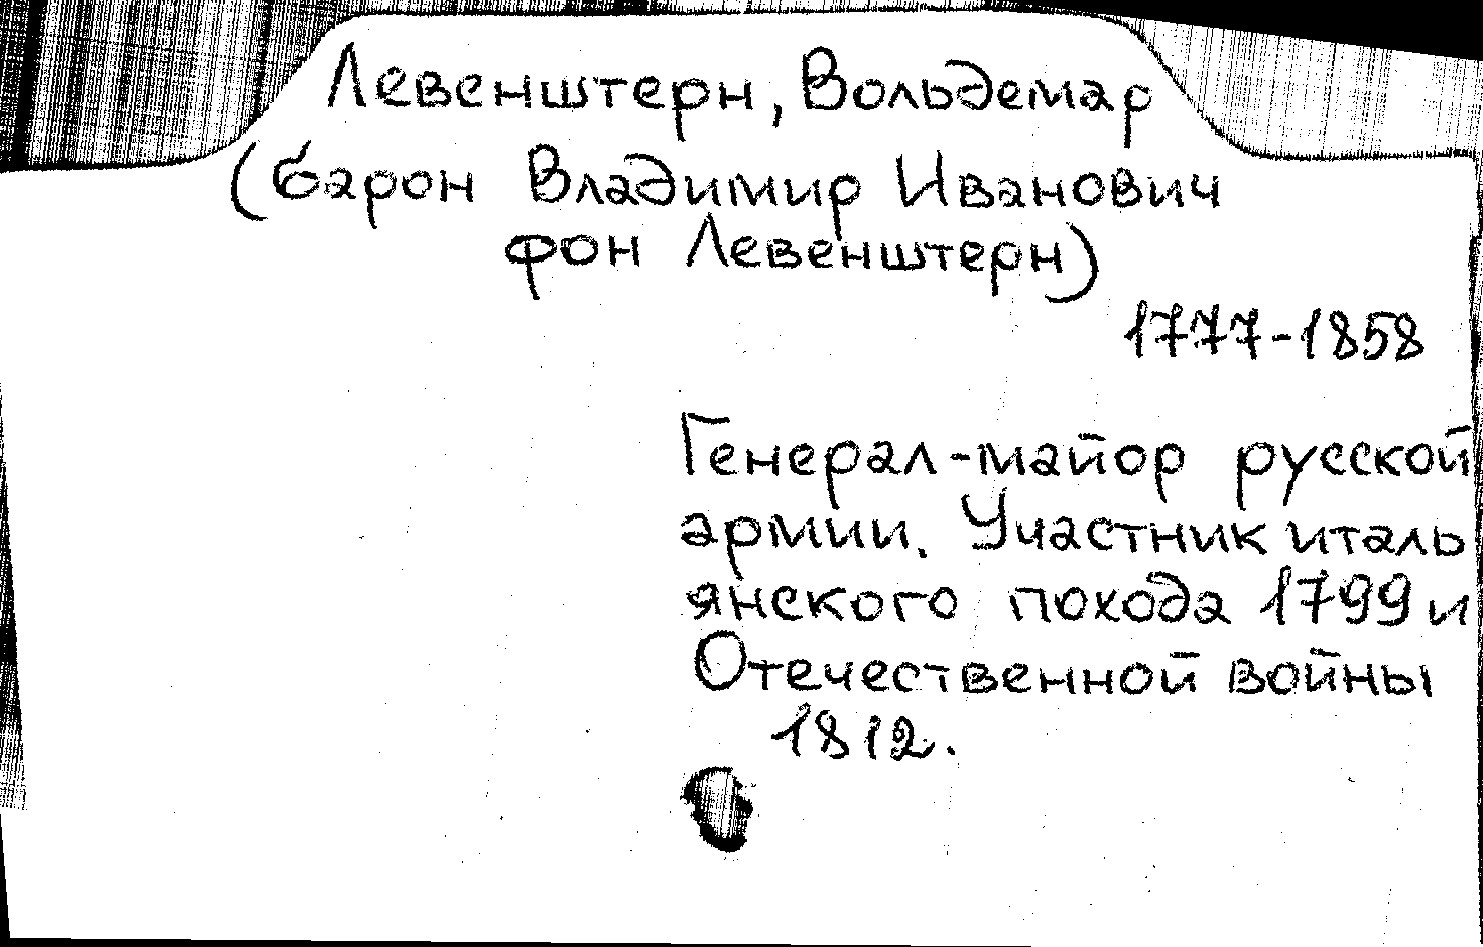 Левенштерн, Вольдемар
(барон Владимир Иванович
фон Левенштерн)
1777-1858
Генерал-майор русской
армии. Участник италь
янского похода 1799 и
Отечественной войны
1812.